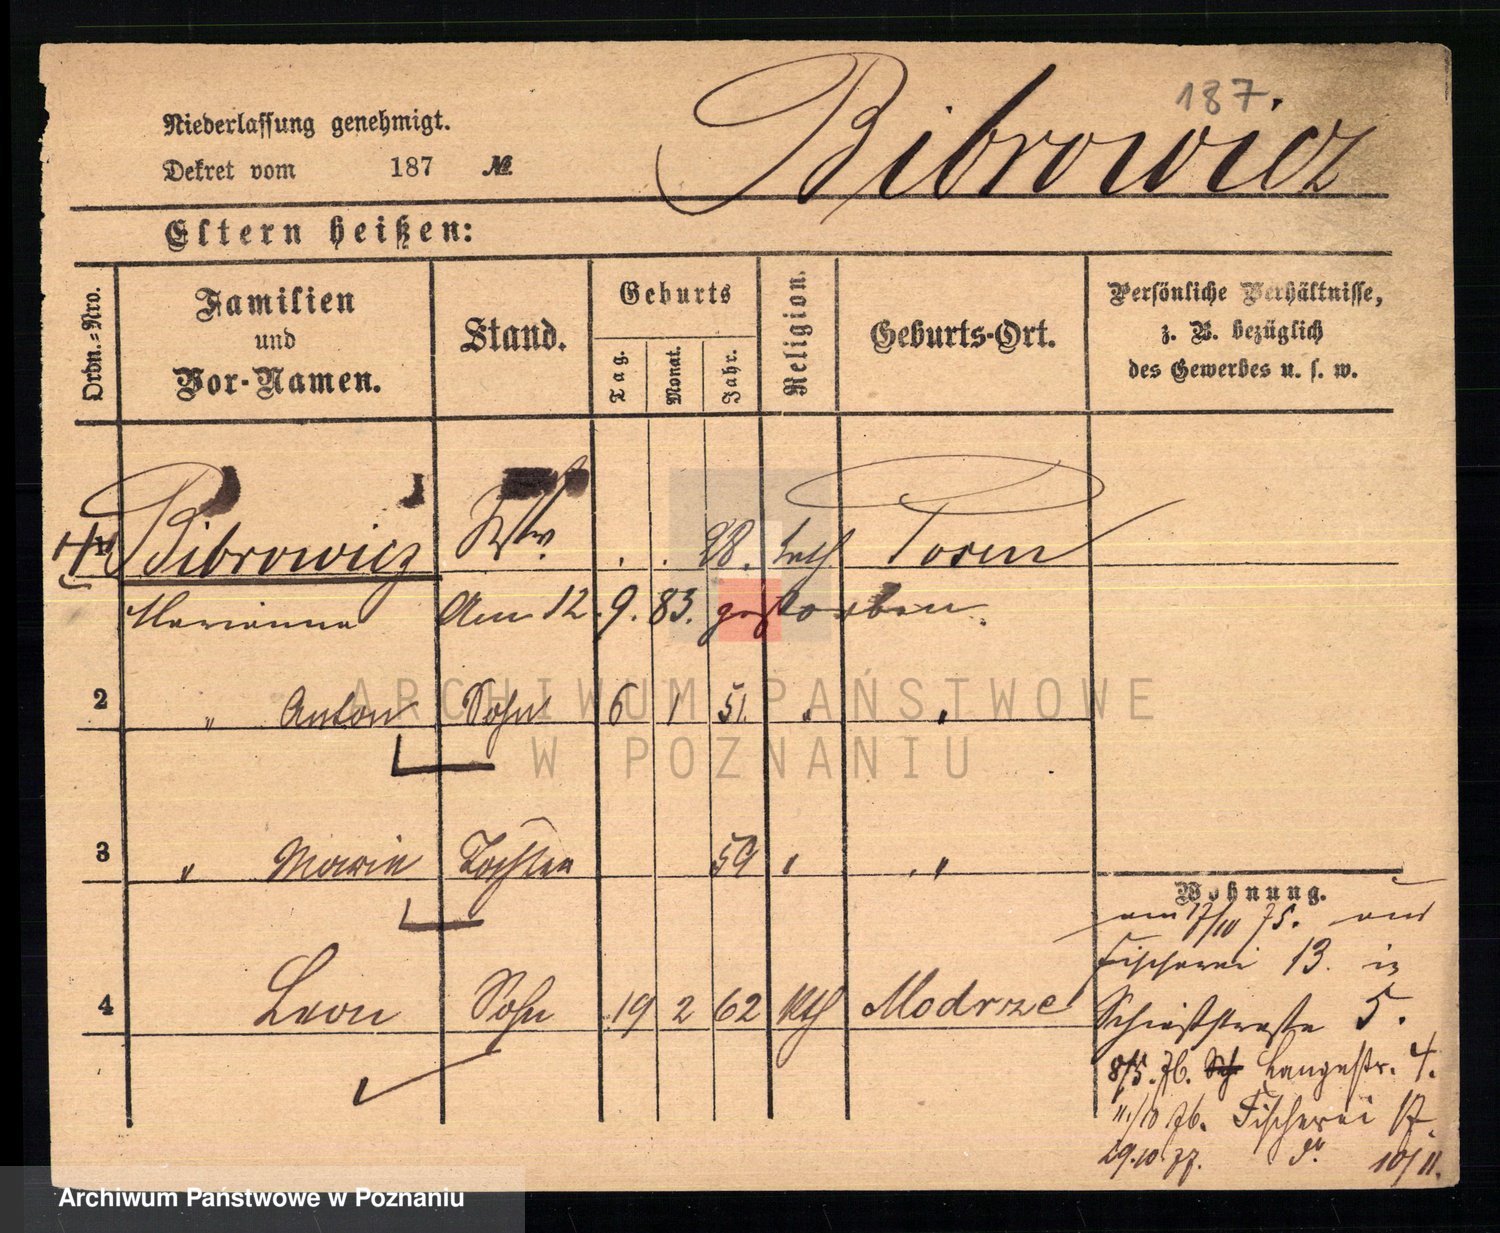 187.
Bibrowicz
Niederlassung genehmigt.
Dekret vom 187 №
Eltern heißen:
Ordn.-Nro.
Familien
und
Vor-Namen.
Stand.
Geburts
Tag.
Monat.
Jahr.
Religion.
Geburts-Ort.
Persönliche Verhältnisse,
z. B. bezüglich
des Gewerbes u. s. w.
1 Bibrowicz Ww. . . 28. kath Posen
Marianna Am 12.9.83. gestorben.
2 " Anton Sohn 6 1 51. " "
3 " Marie Tochter 59 " "
4 Leon Sohn 19 2 62 kth Modrze
Wohnung.
am 17/10 75. aus
Fischerei 13. in
Schießstraße 5.
8/5. 76. Langestr. 4.
11./10 76. Fischerei 17.
29.10 77. do. 10/11.
ARCHIWUM PAŃSTWOWE
W POZNANIU
Archiwum Państwowe w Poznaniu